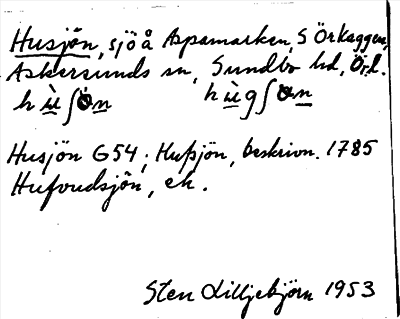 Husjön, sjö å Aspamarken, S Örkaggen,
Askersunds sn, Sundbo hd, Ö.l.
hùʃön hùgʃön
Husjön G54; Hufsjön, beskrivn. 1785
Hufvudsjön, ek.
Sten Lilljebjörn 1953